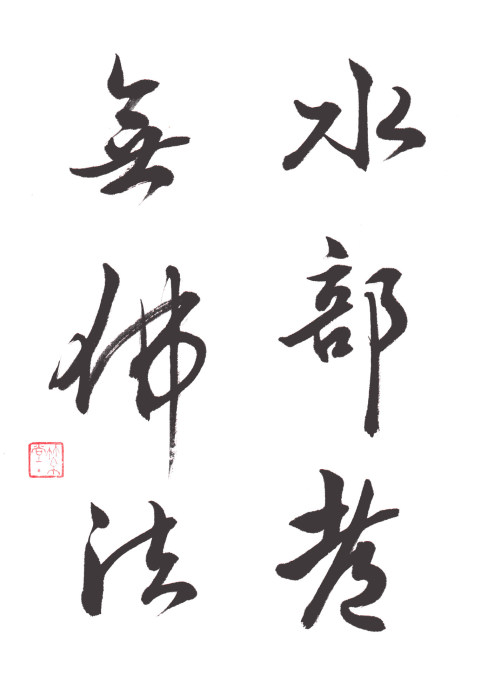 水部
無佛法